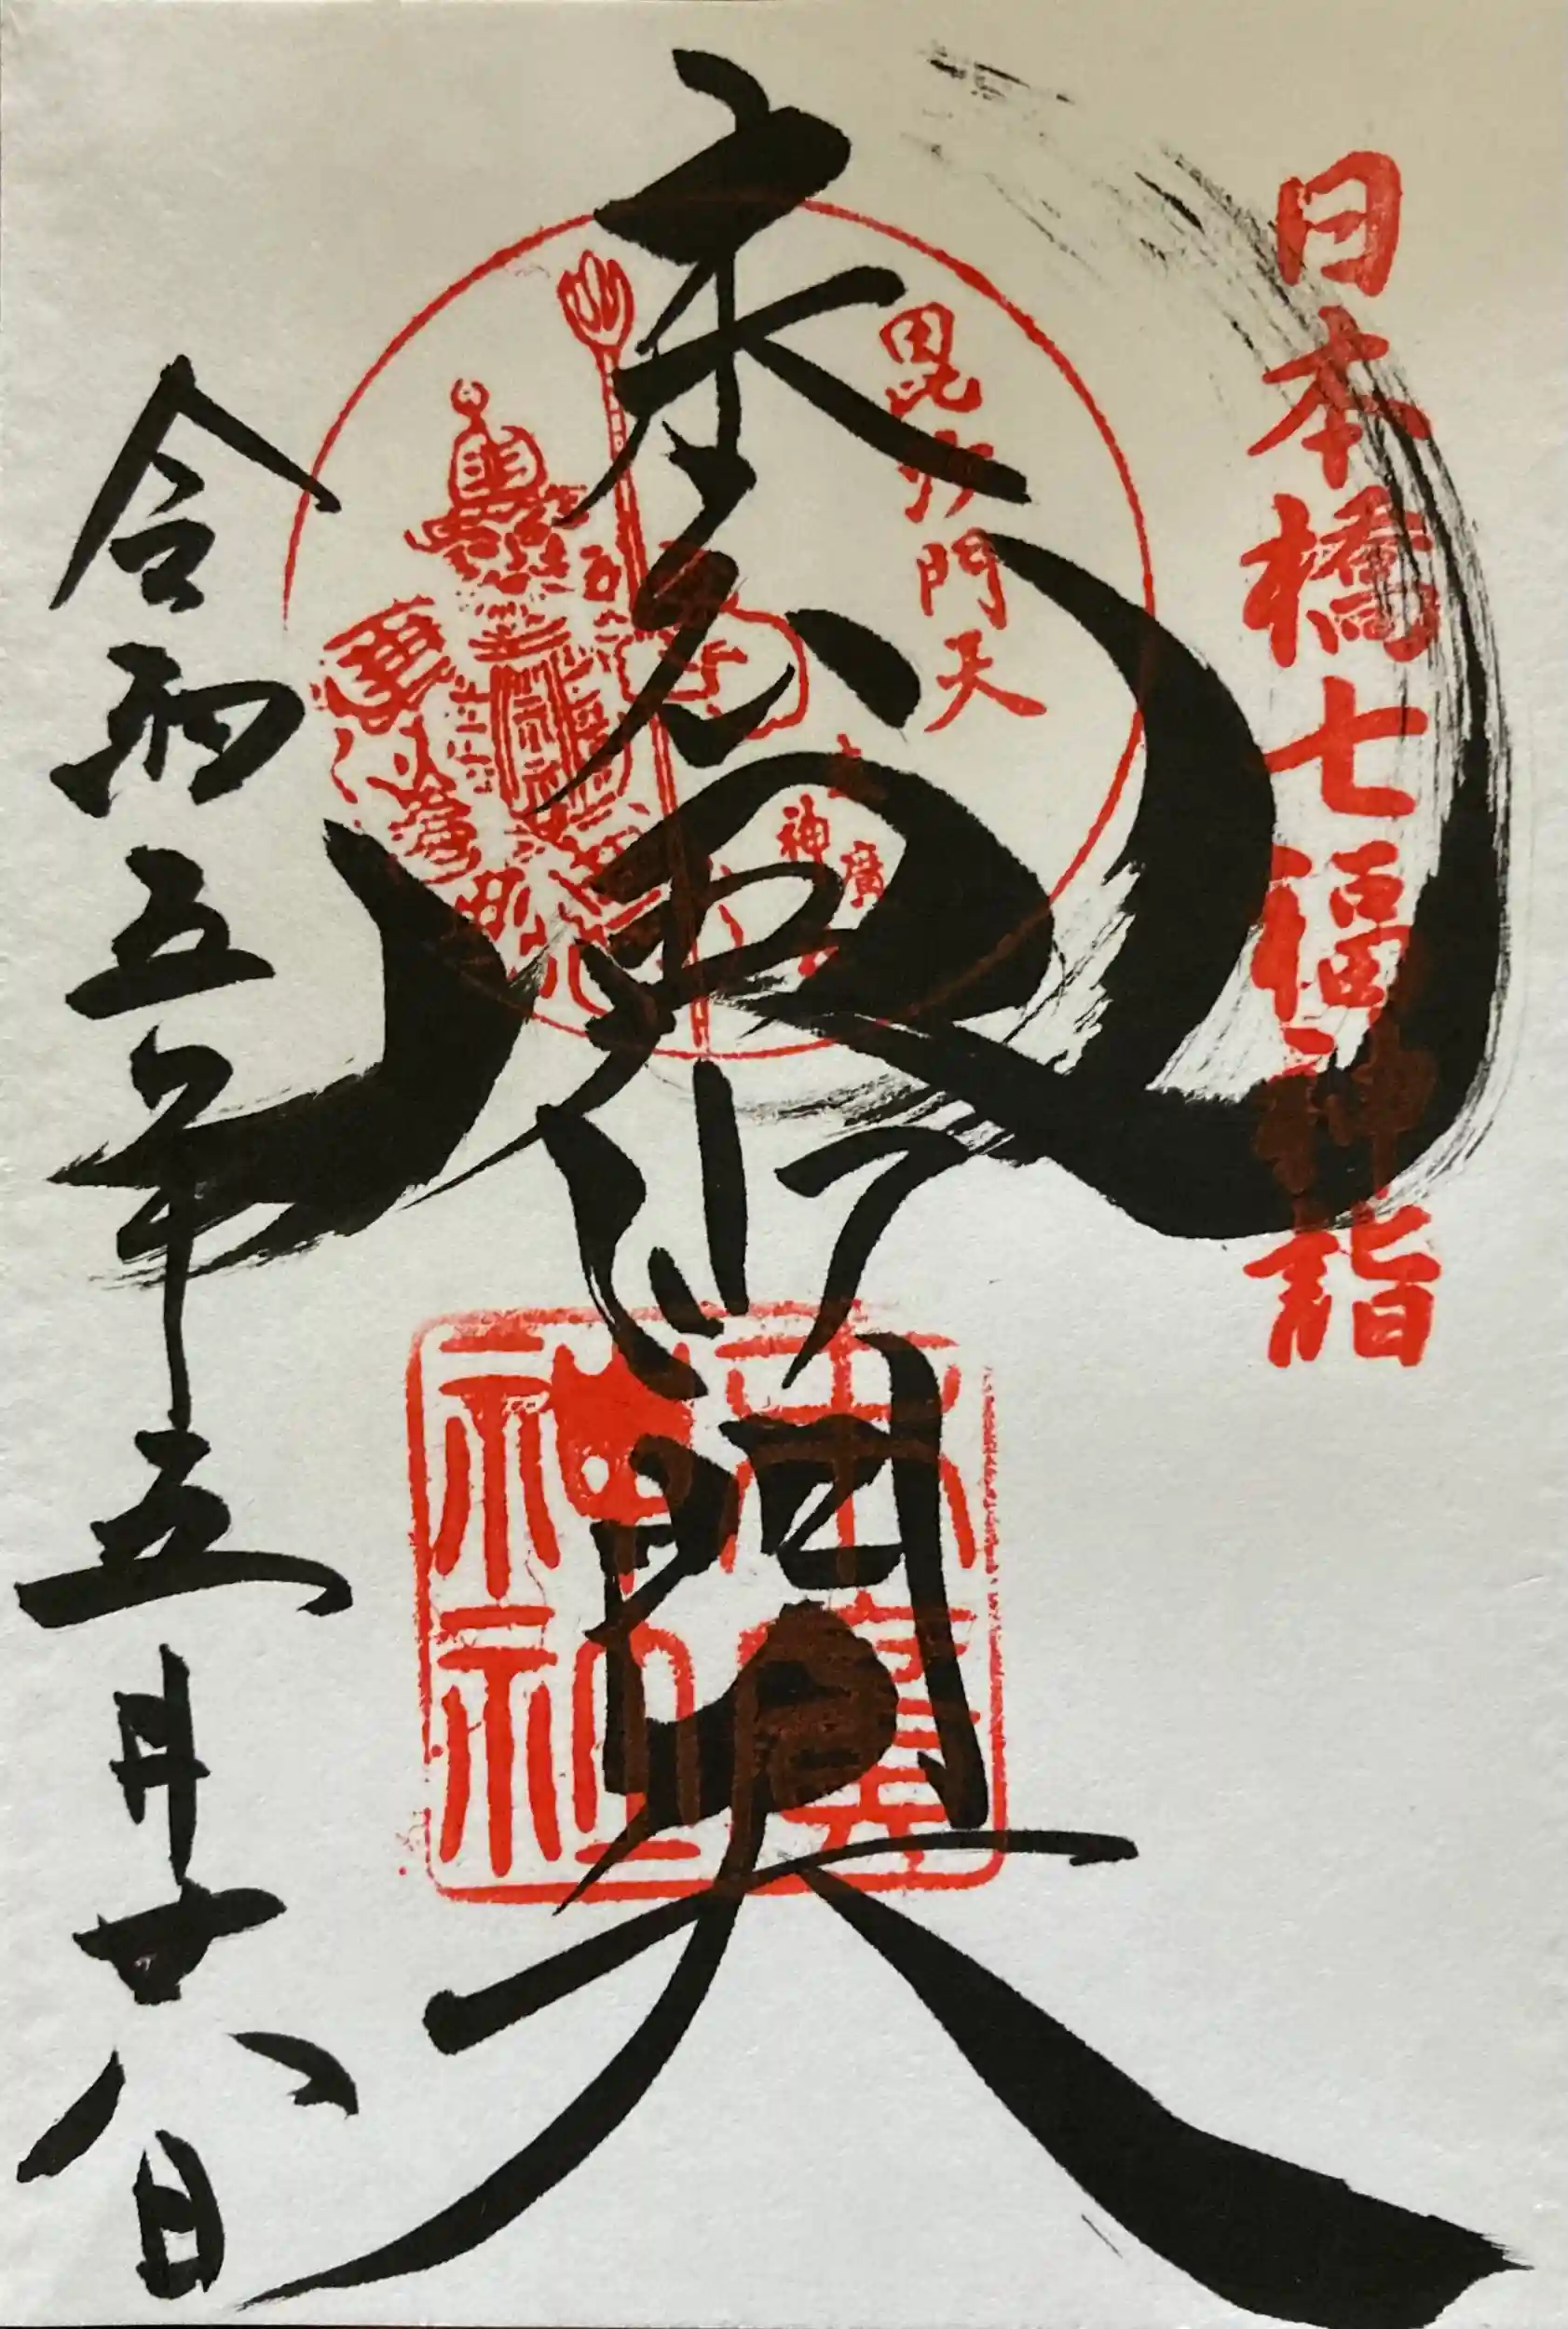 日本橋七福神詣
毘沙門天
末廣毘沙門天
末廣神社
令和五年五月廿八日